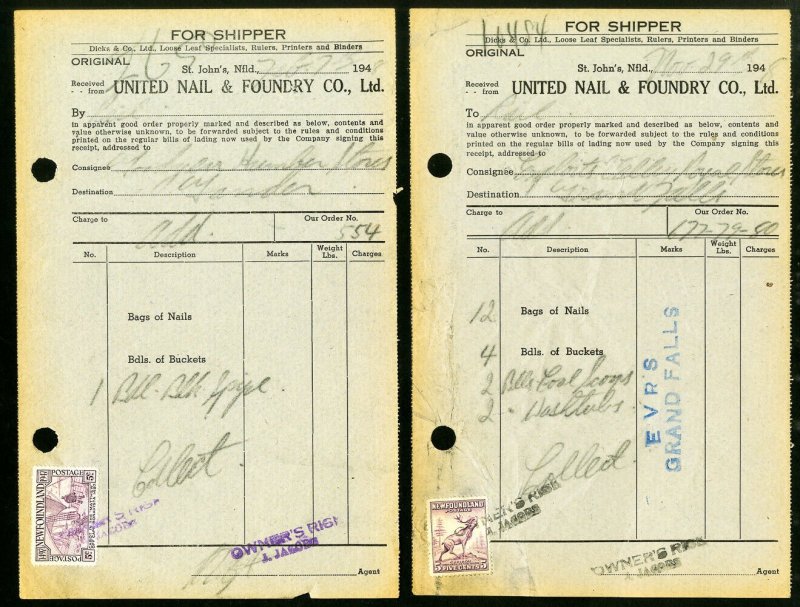 FOR SHIPPER
Dicks & Co., Ltd., Loose Leaf Specialists, Rulers, Printers and Binders
ORIGINAL
St. John's, Nfld., 194
Received from UNITED NAIL & FOUNDRY CO., Ltd.
By
in apparent good order properly marked and described as below, contents and
value otherwise unknown, to be forwarded subject to the rules and conditions
printed on the regular bills of lading now used by the Company signing this
receipt, addressed to
Consignee Stores
Destination Gander
Charge to Add. Our Order No. 554
No. Description Marks Weight Lbs. Charges
Bags of Nails
Bdls. of Buckets
1 Bdl. Blk Pipe
Collect
POSTAGE
NEWFOUNDLAND
POSTAGE
OWNER'S RISK
J. JACOBS
OWNER'S RISK
J. JACOBS
Agent
FOR SHIPPER
Dicks & Co., Ltd., Loose Leaf Specialists, Rulers, Printers and Binders
ORIGINAL
St. John's, Nfld., Nov 29 194
Received from UNITED NAIL & FOUNDRY CO., Ltd.
To Rail
in apparent good order properly marked and described as below, contents and
value otherwise unknown, to be forwarded subject to the rules and conditions
printed on the regular bills of lading now used by the Company signing this
receipt, addressed to
Consignee Royal Stores
Destination Grand Falls
Charge to Add. Our Order No. 177-79-80
No. Description Marks Weight Lbs. Charges
12 Bags of Nails
4 Bdls. of Buckets
2 Bdls Coal Scoops
2 " Washtubs
Collect
EVR'S
GRAND FALLS
NEWFOUNDLAND
POSTAGE
5 FIVE CENTS 5
OWNER'S RISK
J. JACOBS
OWNER'S RISK
J. JACOBS
Agent